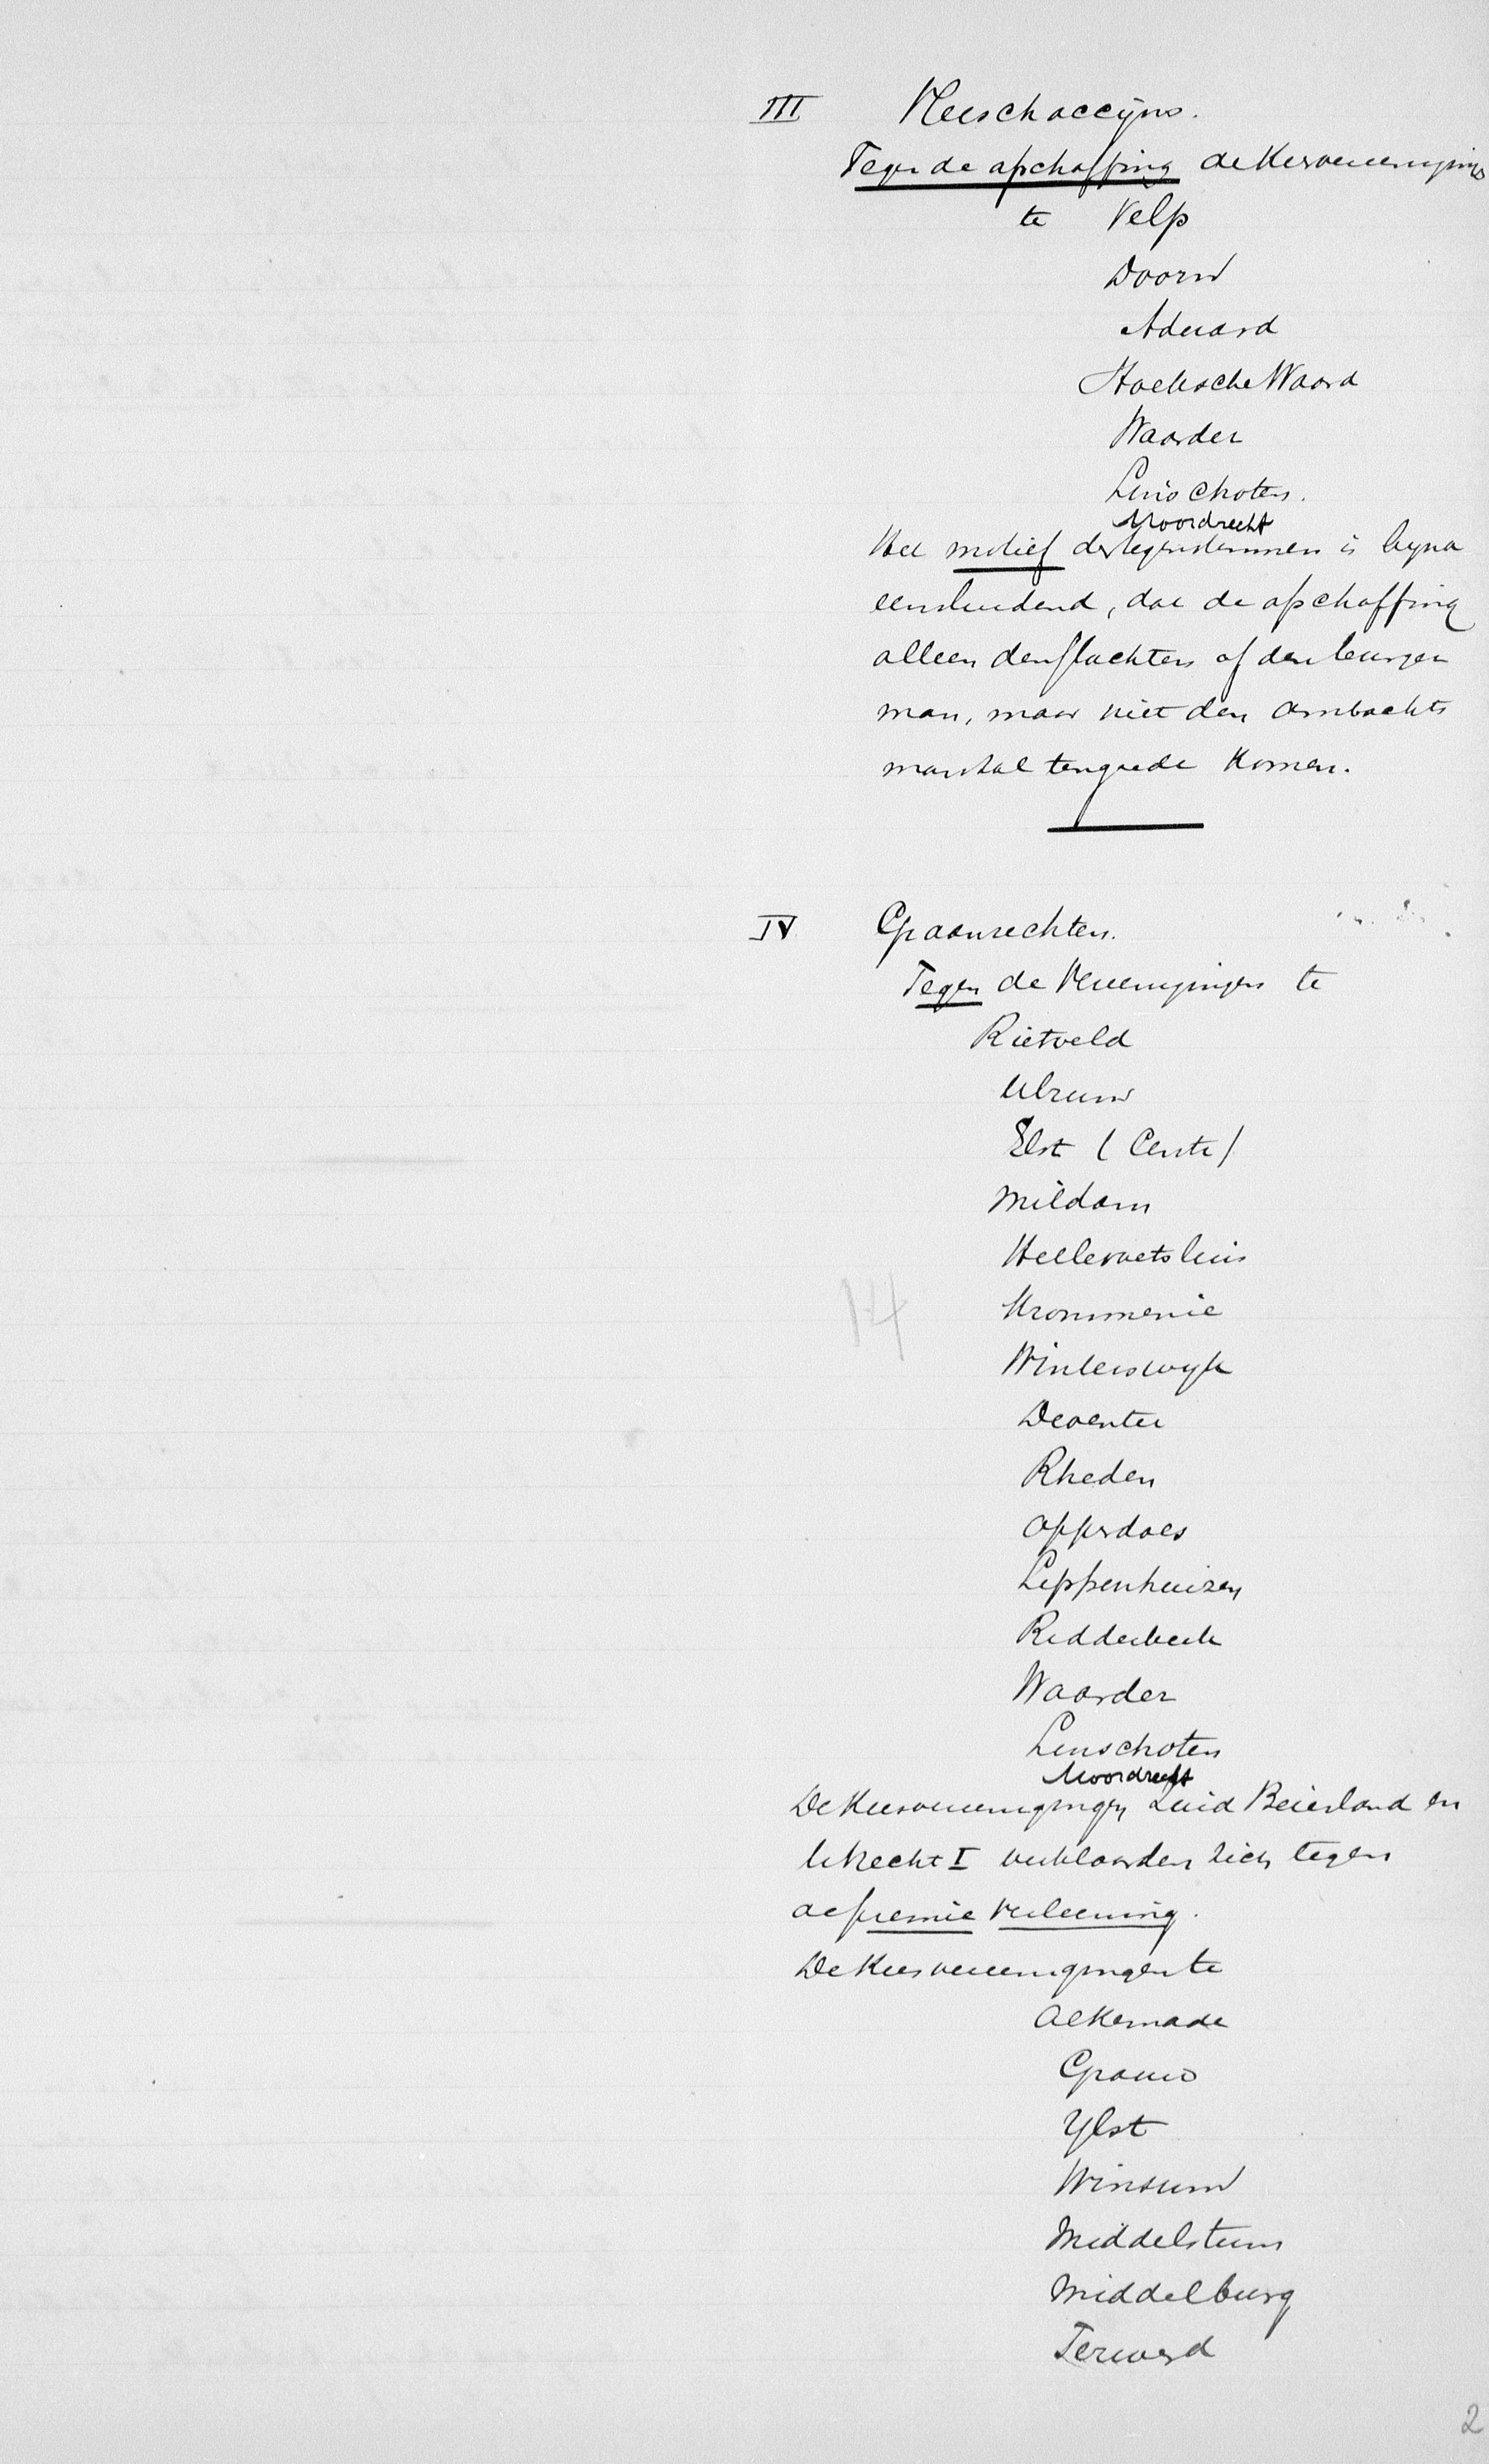 III Vleeschaccijns.
Tegen de afschaffing de Kiesvereenigings
te Velp
Doorn
Aduard
Hoeksche Waard
Waarder
Linschoten.
Moordrecht
Het motief der tegenstemmen is bijna
eensluidend, dat de afschaffing
alleen den slachters of den burger
man, maar niet den ambachts
man zal ten goede komen.
IV Graanrechten.
Tegen de Vereenigingen te
Rietveld
Ulrum
Elst (Cents)
Mildam
Hellevoetsluis
Krommenie
14
Winterswijk
Deventer
Rheden
Opperdoes
Lippenhuizen
Ridderkerk
Waarder
Linschoten
Moordrecht
De Kiesvereenigingen Zuid Beierland en
Utrecht I verklaarden zich tegen
de premie verleening.
De Kiesvereenigingen te
Alkemade
Grouw
Ylst
Winsum
Middelstum
Middelburg
Ternaard
2